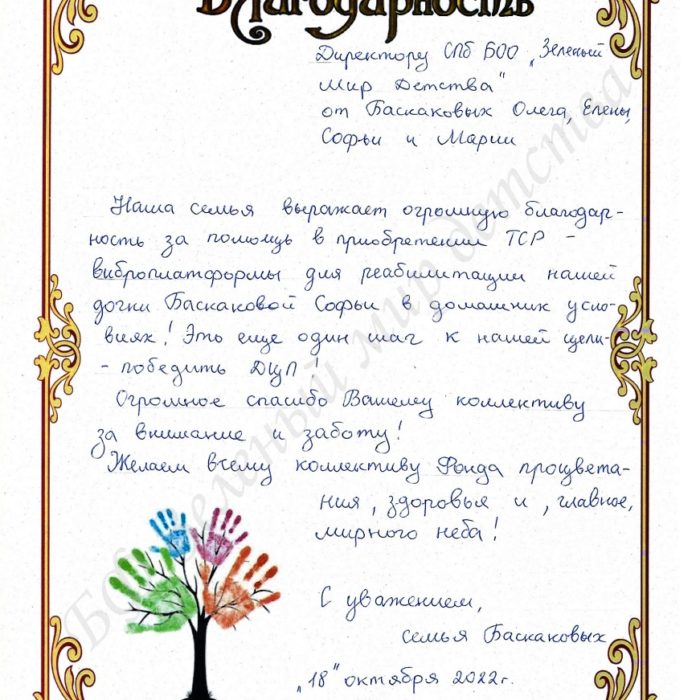 Благодарность
Директору СПб БОО „Зеленый
Мир Детства"
от Баскаковых Олега, Елены,
Софьи и Марии
Наша семья выражает огромную благодар-
ность за помощь в приобретении ТСР -
виброплатформы для реабилитации нашей
дочки Баскаковой Софьи в домашних усло-
виях! Это еще один шаг к нашей цели-
- победить ДЦП!
Огромное спасибо Вашему коллективу
за внимание и заботу!
Желаем всему коллективу Фонда процвета-
ния, здоровья и, главное,
мирного неба!
С уважением,
семья Баскаковых
„18" октября 2022г.
БОО Зеленый мир детства